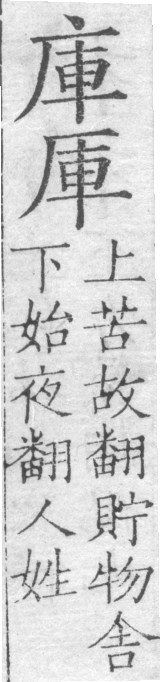 庫厙
上苦故翻貯物舎
下始夜翻人姓